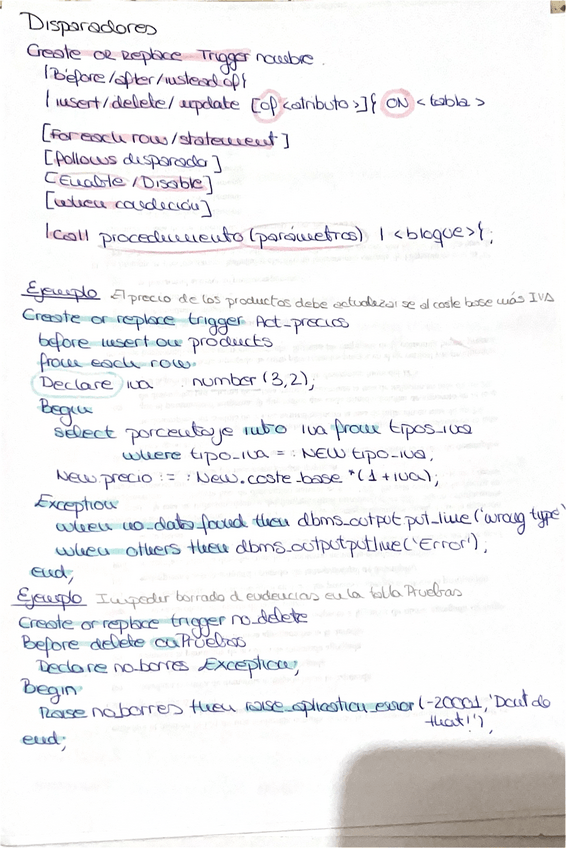 Disparadores
Create or Replace Trigger nombre.
{Before/after/instead of}
{insert/delete/update [of <atributo>]} ON <tabla>
[for each row/statement]
[follows disparado]
[Enable/Disable]
[when condición]
{call procedimiento(parámetros) | <bloque>};
Ejemplo El precio de los productos debe actualizarse al coste base más IVA
Create or replace trigger Act_precios
before insert on products
from each row
Declare iva number(3,2);
Begin
select porcentaje into iva from tipos_iva
where tipo_iva = :NEW tipo_iva;
New.precio := :New.coste_base *(1+iva);
Exception
when no_data_found then dbms_output put_line('wrong type'
when others then dbms_outputputline('Error');
end;
Ejemplo Impedir borrado d evidencias en la tabla Pruebas
Create or replace trigger no_delete
Before delete on Pruebas
Declare noborres Exception;
Begin
Raise noborres then raise_aplication_error(-20001,'Dont do
that!');
end;